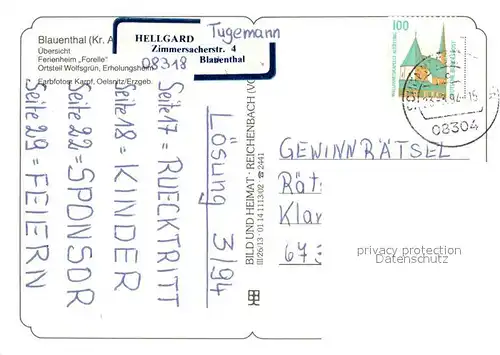 Blauenthal (Kr. A
Übersicht
Ferienheim „Forelle"
Ortsteil Wolfsgrün, Erholungsheim
Farbfotos: Kampf, Oelsnitz/Erzgeb.
HELLGARD Tugemann
Zimmersacherstr. 4
08318 Blauenthal
Lösung 3/94
Seite 17 = RUECKTRITT
Seite 18 = KINDER
Seite 22 = SPONSOR
Seite 29 = FEIERN
BILD UND HEIMAT · REICHENBACH (VO
III/26/13 · 01 14 1113/02 · ☎ 2441
100
08304
GEWINNRÄTSEL
Rät
Klar
67
privacy protection
Datenschutz